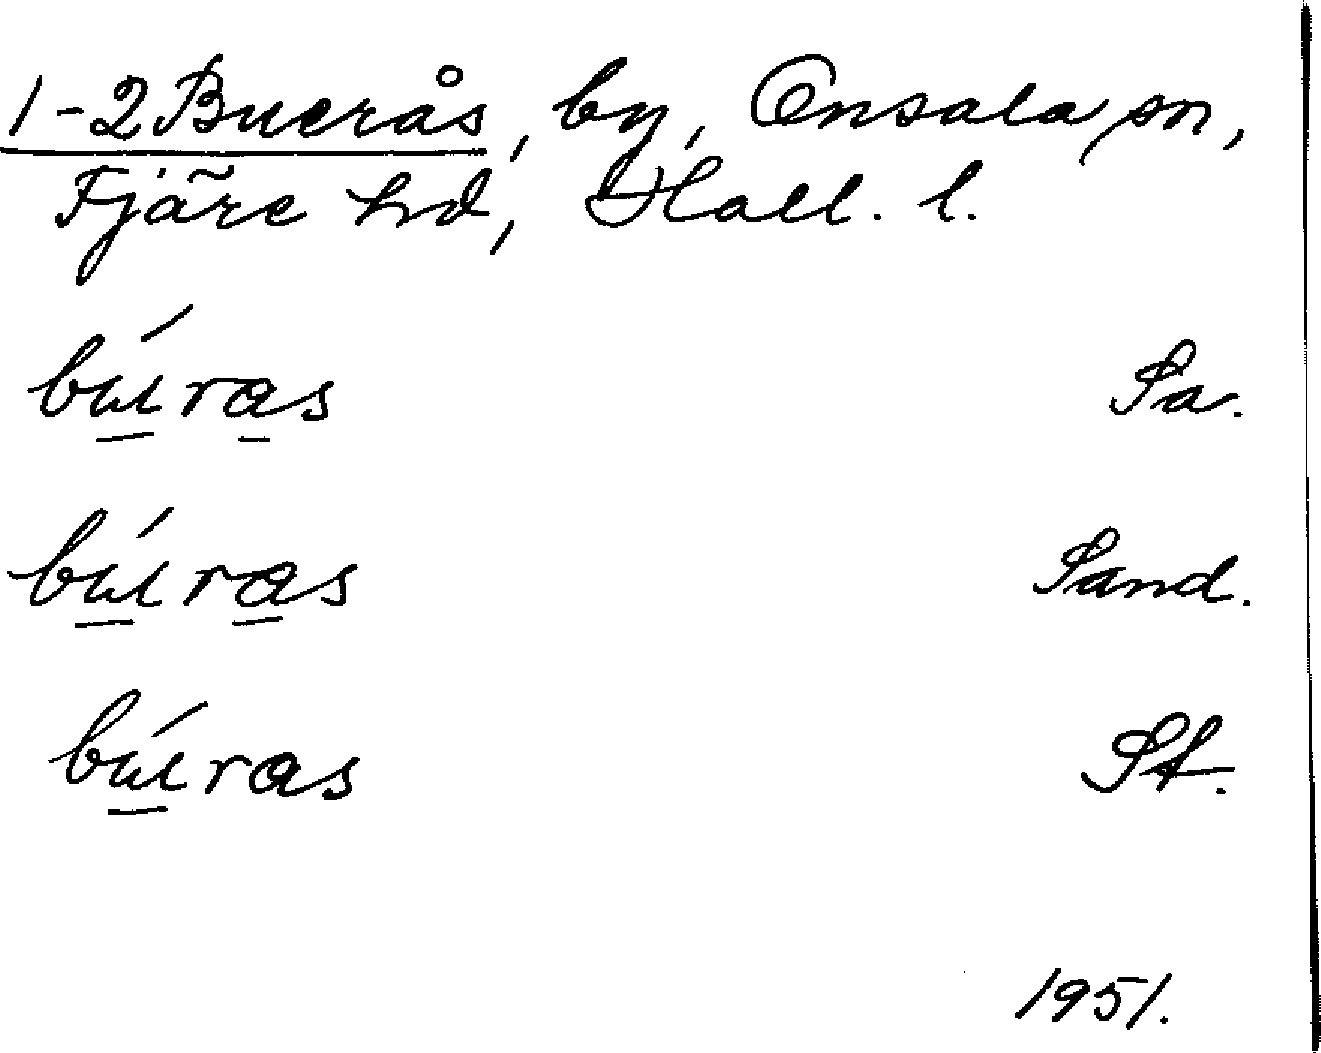 1-2 Buerås, by, Onsala sn,
Fjäre hd, Hall. l.
bú̲ra̲s Sa.
bú̲ra̲s Sand.
bú̲ras St.
1951.